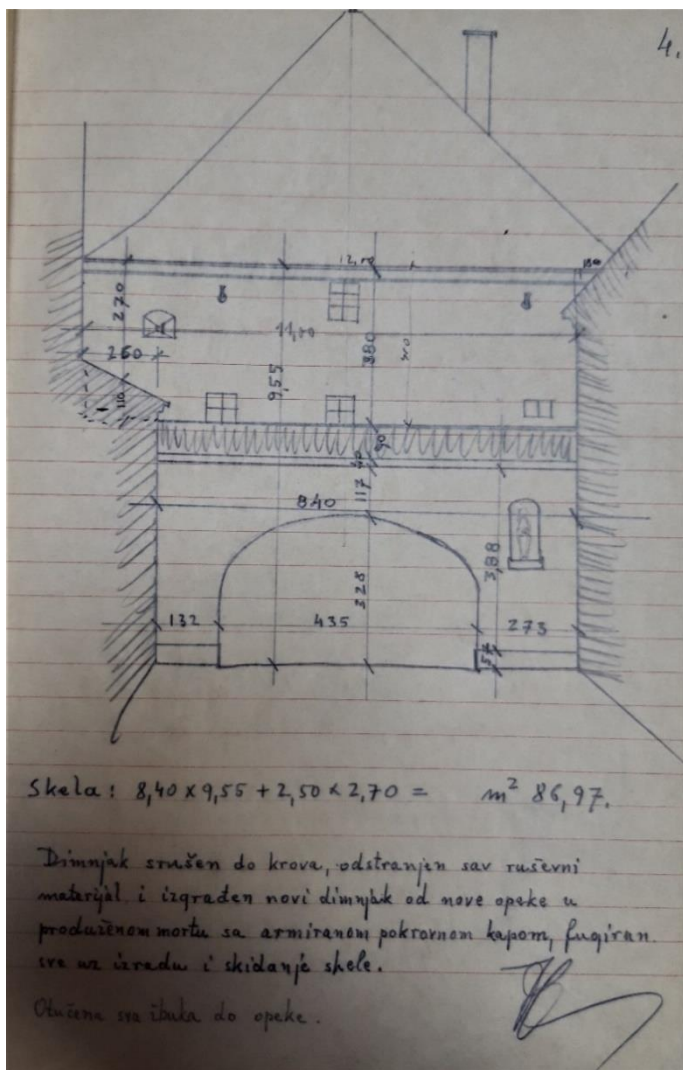 4.
12,10
130
270
11,00
260
880
9,55
110
90
40
117
840
3,88
328
132
435
273
57
Skela: 8,40 x 9,55 + 2,50 x 2,70 = m² 86,97.
Dimnjak srušen do krova, odstranjen sav ruševni
materijal i izgrađen novi dimnjak od nove opeke u
produženom mortu sa armiranom pokrovnom kapom, fugiran
sve uz izradu i skidanje skele.
Otučena sva žbuka do opeke.